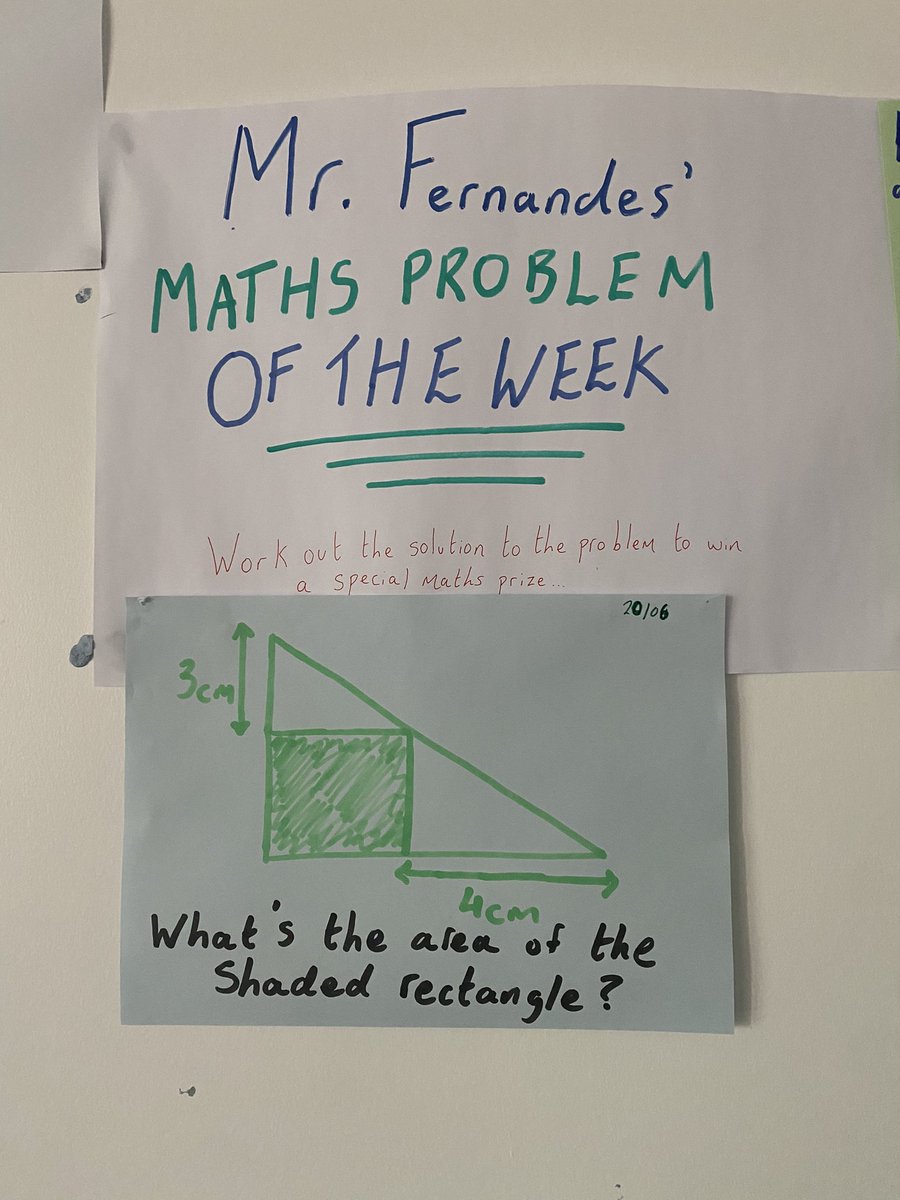 Mr. Fernandes'
MATHS PROBLEM
OF THE WEEK
Work out the solution to the problem to win
a special maths prize...
20/06
3cm
4cm
What's the area of the
Shaded rectangle?